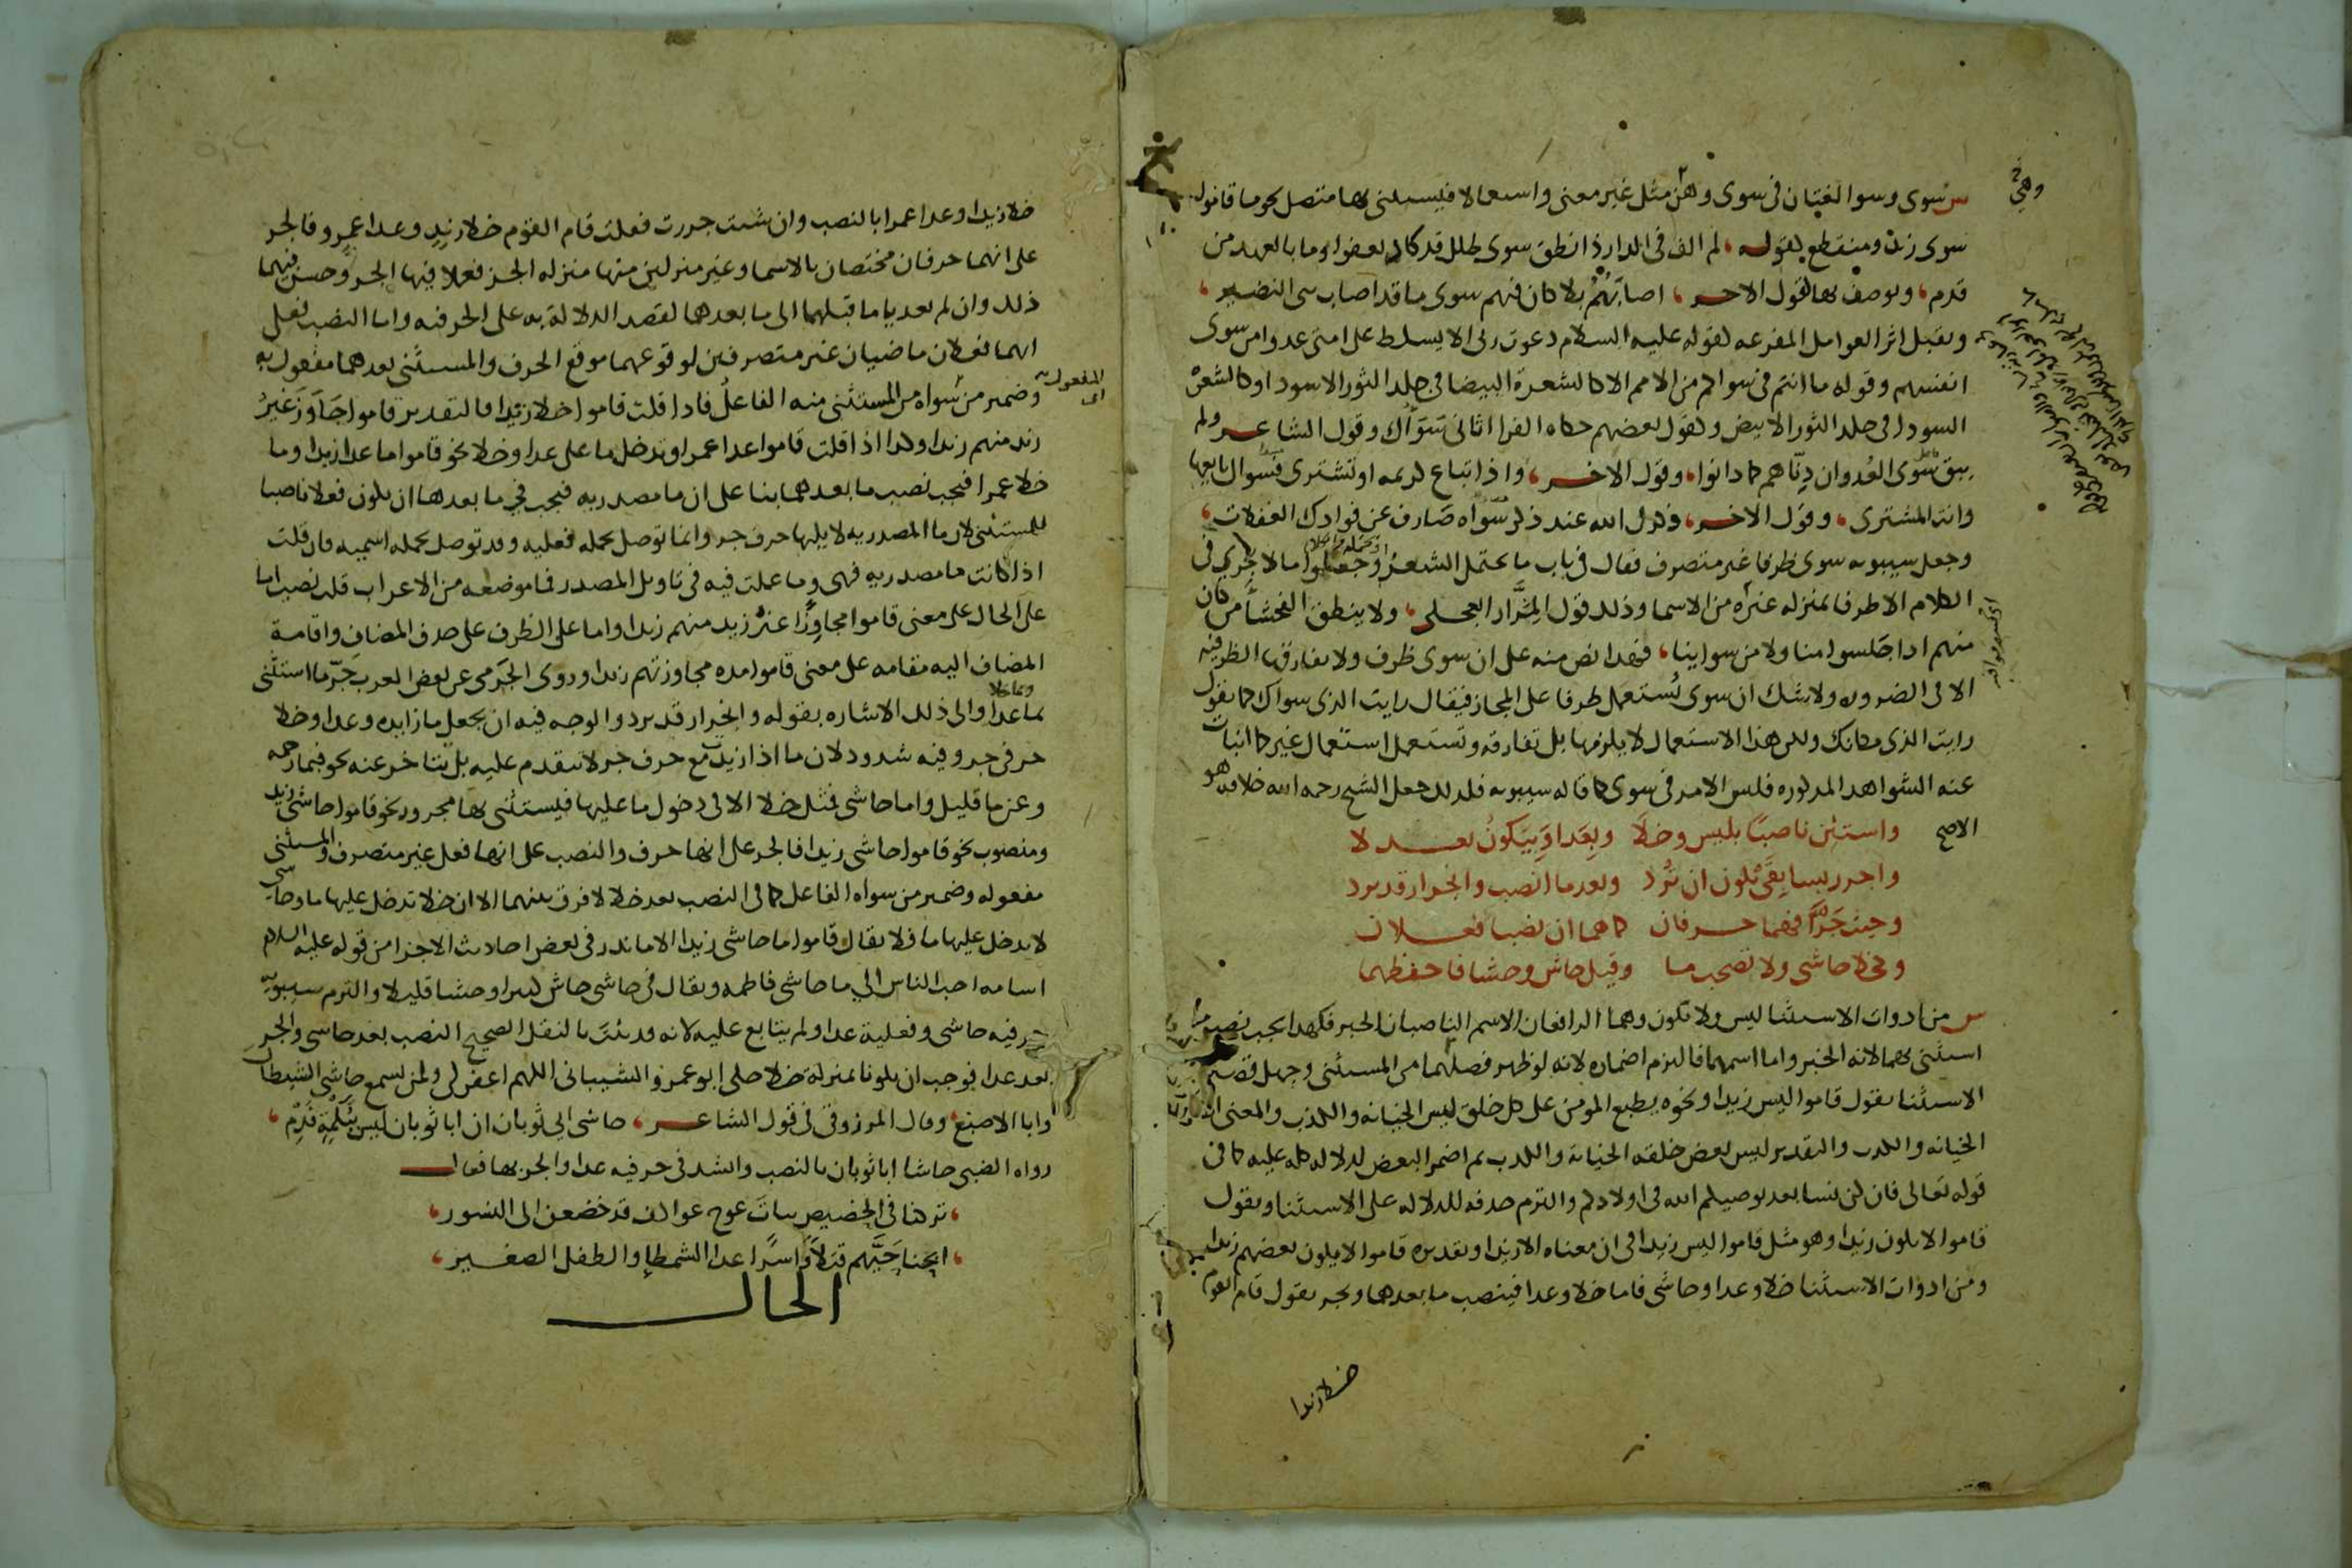 س سُوى وسوا لغتان فى سوى وهى مثل غير معنى واستعمالا فيستثنى بها متصل نحو ما قاموا
سوى زيد ومنقطع كقوله لم الف فى الدار ذا نطق سوى طلل قد كاد يعفوا وما بالعهد من
قدم ويوصف بها كقول الاخر اصابهم بلا كان فيهم سوى ما قد اصاب بنى النضير
وتقبل اثر العوامل المفرغه كقوله عليه السلام دعوت ربى الا يسلط على امتى عدوا من سوى
انفسهم وقوله ما انتم فى سواكم من الامم الا كالشعرة البيضا فى جلد الثور الاسود او كالشعرة
السودا فى جلد الثور الابيض وكقول بعضهم حكاه الفرا اتانى سواك وقول الشاعر ولم
يبق سوى العدوان دناهم كما دانوا وقول الاخر واذا تباع كريمه او تشترى فسواك بايعها
وانت المشترى وقول الاخر ذكرك الله عند ذكر سواه صارف عن فوادك الغفلات
وجعل سيبويه سوى ظرفا غير متصرف فقال فى باب ما يحتمل الشعر وجعلوا ما لا يجرى فى
الكلام الا ظرفا بمنزله غيره من الاسما وذلك قول المرار العجلى ولا ينطق الفحشا من كان
منهم اذا جلسوا منا ولا من سواينا فهذا نص منه على ان سوى ظرف ولا تفارقها الظرفيه
الا فى الضروره ولا شك ان سوى تستعمل ظرفا على المجاز فيقال رايت الذى سواك كما يقول
رايت الذى مكانك ولكن هذا الاستعمال لا يلزمها بل تفارقه وتستعمل استعمال غير كما انبات
عنه الشواهد المذكوره فليس الامر فى سوى كما قاله سيبويه فلذلك جعل الشيخ رحمه الله خلافه هو
الاصح
واستثن ناصبا بليس وخلا وبعدا وبيكون بعد لا
واجرر بسابقى يكون ان ترد وبعد ما انصب وانجرار قد يرد
وحيث جرا فهما حرفان كما هما ان نصبا فعلان
وكخلا حاشى ولا تصحب ما وقيل حاش وحشا فاحفظهما
س من ادوات الاستثنا ليس ولا يكون وهما الرافعان الاسم الناصبان الخبر فلهذا يجب نصب ما
استثنى بهما لانه الخبر واما اسمهما فالتزم اضماره لانه لو ظهر فصلهما من المستثنى وجهل قصد
الاستثنا تقول قاموا ليس زيدا ونحوه يطبع المومن على كل خلق ليس الخيانه والكذب والمعنى الا
الخيانه والكذب والتقدير ليس بعض خلقه الخيانه والكذب ثم اضمر البعض لدلاله كله عليه كما فى
قوله تعالى فان كن نسا بعد يوصيكم الله فى اولادكم والتزم حذفه للدلاله على الاستثنا وتقول
قاموا لا يكون زيدا وهو مثل قاموا ليس زيدا فى ان معناه الا زيدا وتقديره قاموا لا يكون بعضهم زيدا
ومن ادوات الاستثنا خلا وعدا وحاشى فاما خلا وعدا فينصب ما بعدهما ويجر تقول قام القوم
خلا زيدا
خلا زيدا وعدا عمرا بالنصب وان شئت جررت فقلت قام القوم خلا زيد وعدا عمرو فالجر
على انهما حرفان مختصان بالاسما وغير منزلين منها منزله الجز فعملا فيها الجر وحسن فيهما
ذلك وان لم يعديا ما قبلهما الى ما بعدهما لقصد الدلالة به على الحرفيه واما النصب فعلى
انهما فعلان ماضيان غير متصرفين لوقوعهما موقع الحرف والمستثنى بعدهما مفعول به
وضمير من سواه من المستثنى منه الفاعل فاذا قلت قاموا خلا زيدا فالتقدير قاموا جاوز غير
زيد منهم زيدا وكذا اذا قلت قاموا عدا عمرا وتدخل ما على عدا وخلا نحو قاموا ما عدا زيدا وما
خلا عمرا فيجب نصب ما بعدهما بنا على ان ما مصدريه فيجب فى ما بعدها ان يكون فعلا ناصبا
للمستثنى لان ما المصدريه لا يليها حرف جر وانما توصل بجمله فعليه وقد توصل بجمله اسميه فان قلت
اذا كانت ما مصدريه فهى وما عملت فيه فى تاويل المصدر فما موضعه من الاعراب قلت نصب اما
على الحال على معنى قاموا مجاوزا غير زيد منهم زيدا واما على الظرف على حذف المضاف واقامة
المضاف اليه مقامه على معنى قاموا مده مجاوزتهم زيدا وروى الجرمى عن بعض العرب جر ما استثنى
بما عدا وما خلا والى ذلك الاشاره بقوله وانجرار قد يرد والوجه فيه ان يجعل ما زايده وعدا وخلا
حرفى جر وفيه شذوذ لان ما اذا زيدت مع حرف جر لا تتقدم عليه بل تتاخر عنه نحو فبما رحمه
وعن ما قليل واما حاشى فمثل خلا الا فى دخول ما عليها فيستثنى بها مجرور نحو قاموا حاشى زيد
ومنصوب نحو قاموا حاشى زيدا فالجر على انها حرف والنصب على انها فعل غير متصرف والمستثنى
مفعوله وضمير من سواه الفاعل كما فى النصب بعد خلا لا فرق بينهما الا ان خلا تدخل عليها ما وحاشى
لا تدخل عليها ما فلا يقال قاموا ما حاشى زيدا الا ما ندر فى بعض احاديث الاجزا من قوله عليه السلام
اسامه احب الناس الى ما حاشى فاطمه ويقال فى حاشى حاش كثيرا وحشا قليلا والتزم سيبويه
حرفيه حاشى وفعلية عدا ولم يتابع عليه لانه قد ثبت بالنقل الصحيح النصب بعد حاشى والجر
بعد عدا فوجب ان يكونا بمنزلة خلا حكى ابو عمرو الشيبانى اللهم اغفر لى ولمن يسمع حاشى الشيطان
وابا الاصبغ وقال المرزوقى فى قول الشاعر حاشى ابى ثوبان ان ابا ثوبان ليس ببكمة فدم
رواه الضبى حاشا ابا ثوبان بالنصب وانشد فى حرفيه عدا والجر بها فقال
تركنا فى الحضيض بنات عوج عواكف قد خضعن الى النسور
ابحنا حيهم قتلا واسرا عدا الشمطا والطفل الصغير
الحال